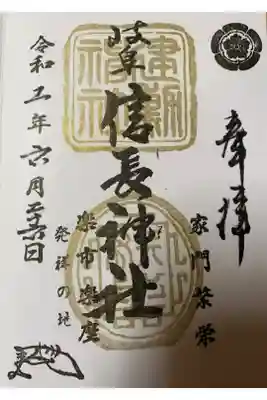 奉拝
家門繁栄
岐阜
信長神社
楽市楽座
発祥の地
令和年六月日
建勲神社